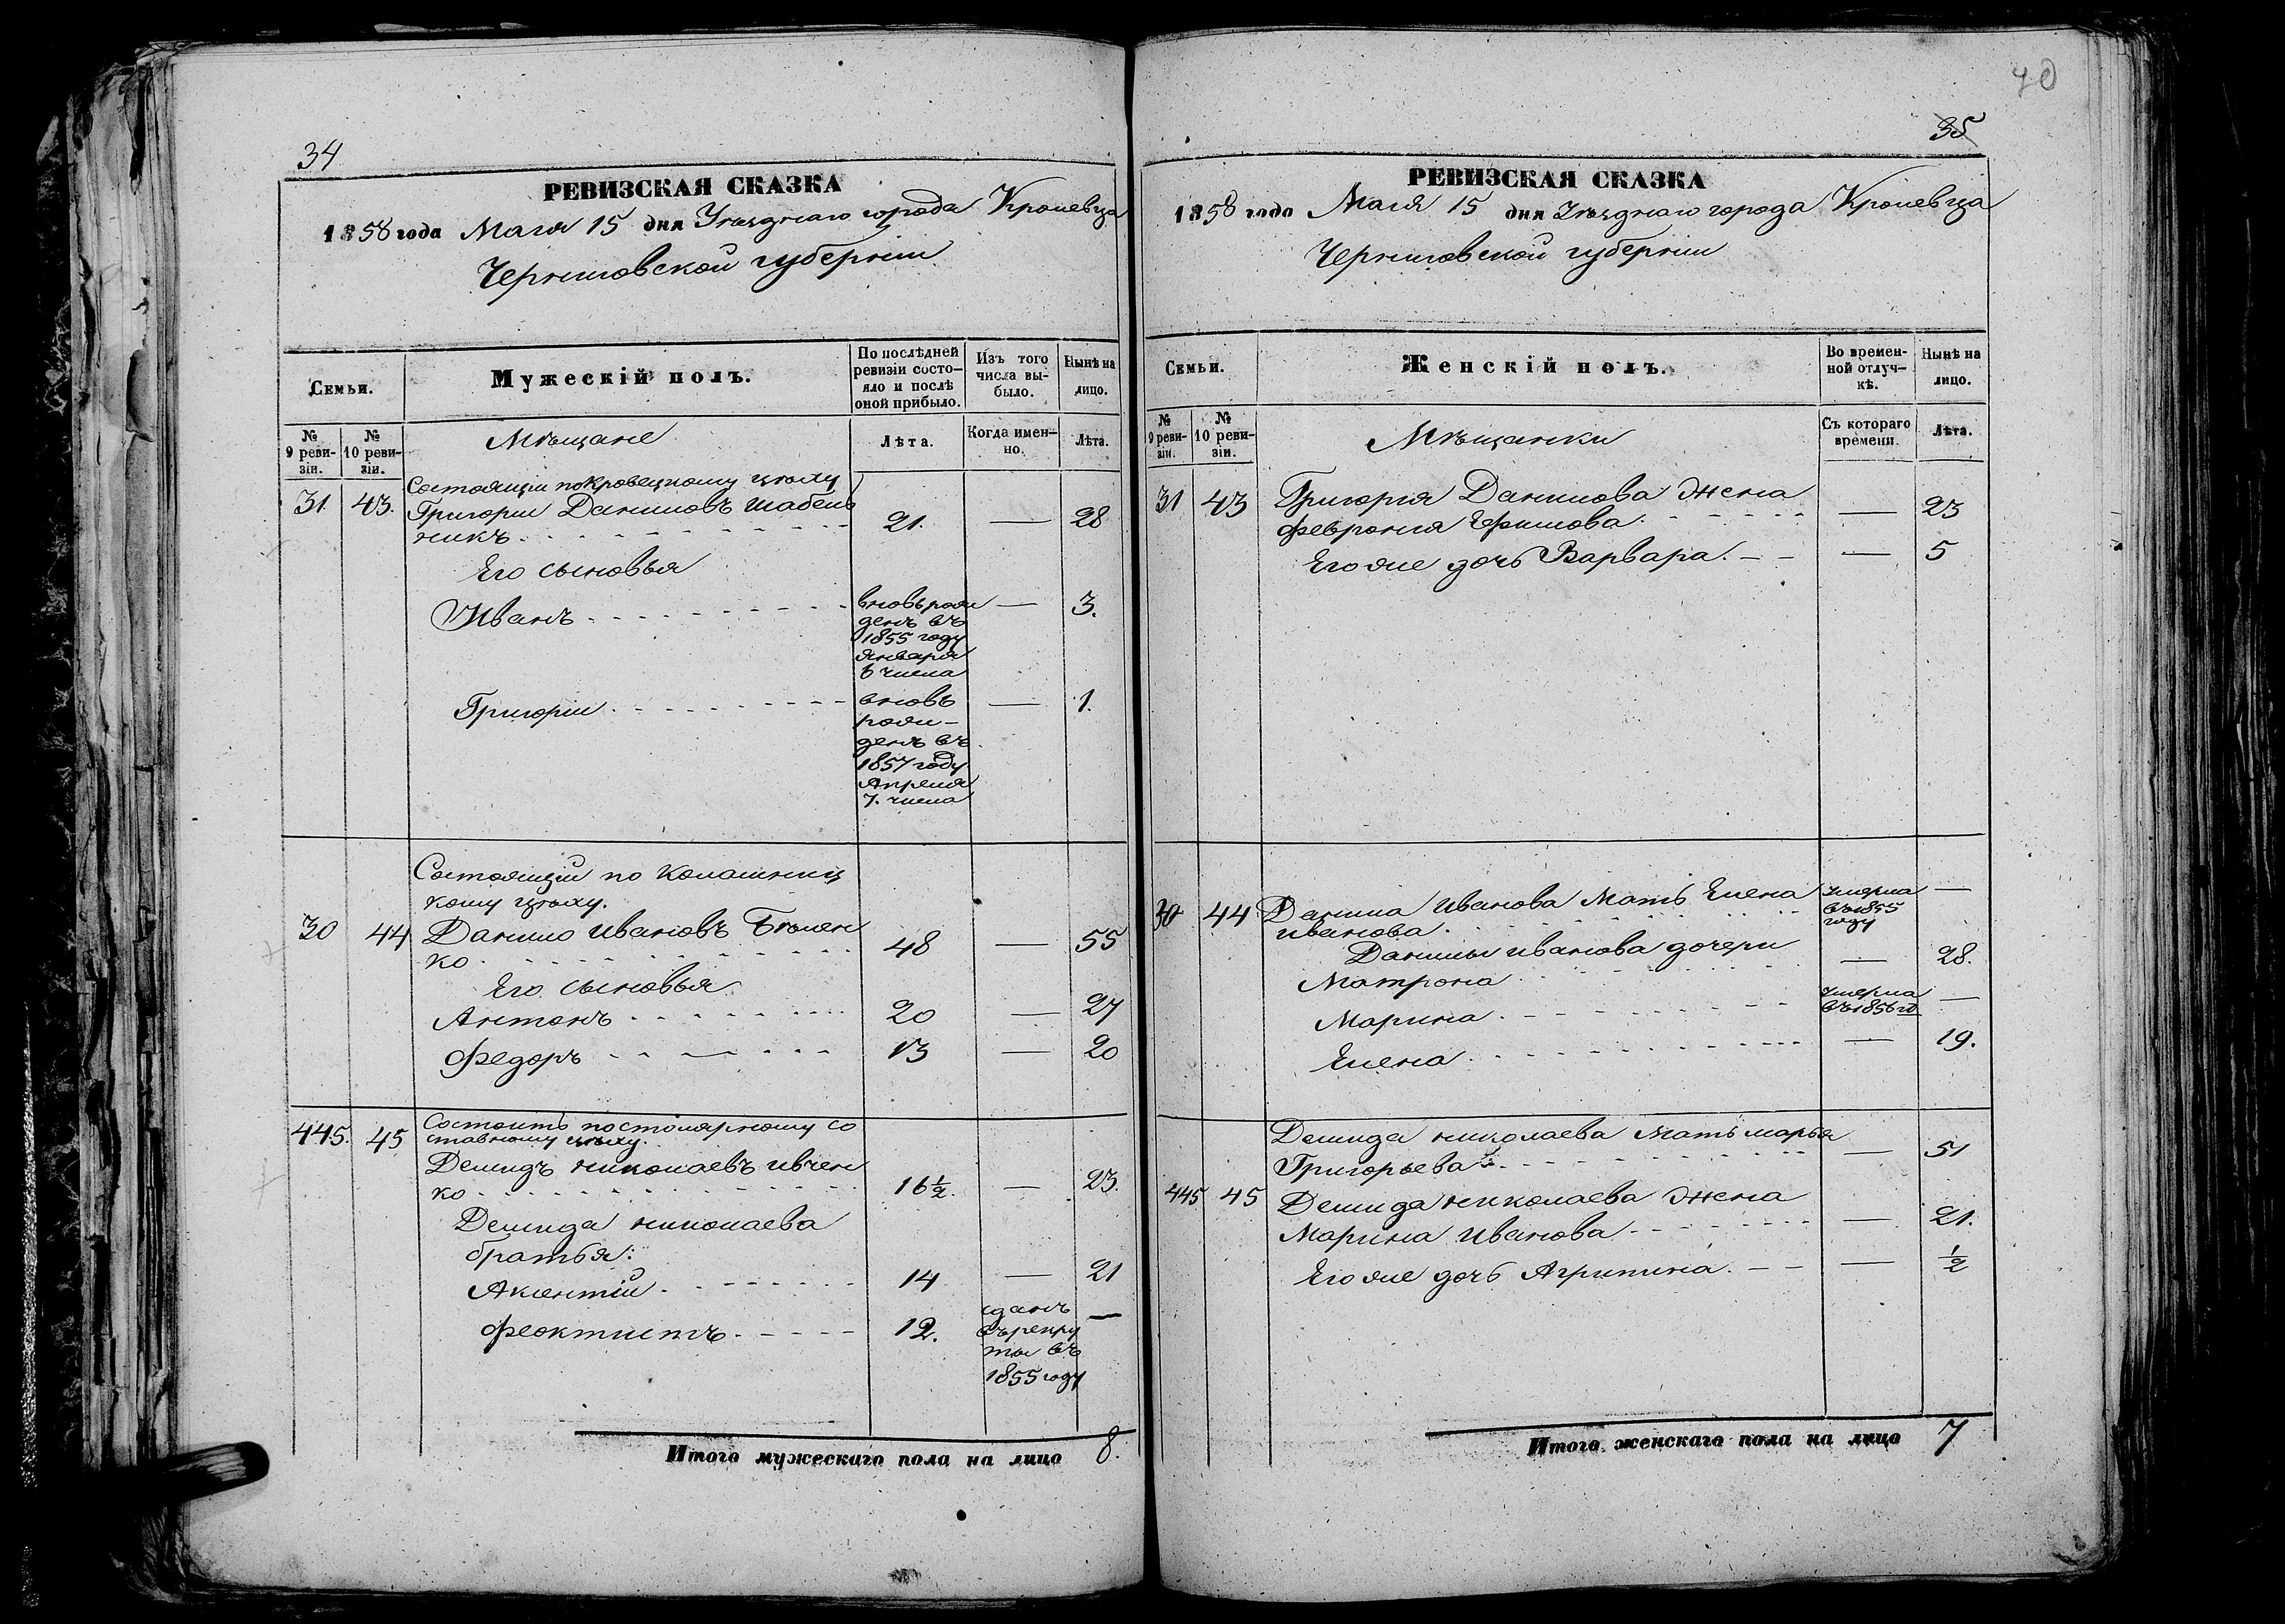 34
РЕВИЗСКАЯ СКАЗКА
1858 года Маія 15 дня Уѣзднаго города Кролевца
Черниговской губерніи
Семьи.
Мужескій полъ.
По послѣдней
ревизіи состо-
яло и послѣ
оной прибыло.
Изъ того
числа вы-
было.
Нынѣ на
лицо.
№
9 реви-
зіи.
№
10 реви-
зіи.
Мѣщане
Лѣта.
Когда имен-
но.
Лѣта.
Состоящіи по кровецкому цѣху
31 43. Григорій Даниловъ Шабель
никъ 21. — 28
Его сыновья
Иванъ вновь рож — 3.
денъ въ
1855 году
Января
6 числа
Григорій вновь — 1.
рож-
денъ въ
1857 году
Апреля
7. числа
Состоящіи по Колашниц
кому цѣху.
30 44 Данило Ивановъ Бѣлен
ко 48 — 55
Его сыновья
Антонъ 20 — 27
Федоръ 13 — 20
445. 45 Состоитъ по столярному со
ставному цѣху.
Демидъ Николаевъ Ивчен
ко 16 1/2. — 23.
Демида Николаева
братья:
Акентій 14 — 21
Феоктистъ 12. сданъ —
въ рекру
ты въ
1855 году
Итого мужескаго пола на лицо 8.
35
РЕВИЗСКАЯ СКАЗКА
1858 года Маія 15 дня Уѣзднаго города Кролевца
Черниговской губерніи
Семьи.
Женскій полъ.
Во времен-
ной отлуч-
кѣ.
Нынѣ на
лицо.
№
9 реви-
зіи.
№
10 реви-
зіи.
Мѣщанки
Съ котораго
времени.
Лѣта.
31 43 Григорія Данилова Жена
Феврония Ефимова — 23
Его же дочь Варвара. — 5
30 44 Данила Иванова Мать Елена умерла —
Иванова въ 1855
году
Данилы Иванова дочери
Матрона — 28.
Марина умерла —
въ 1856 го
Елена — 19.
Демида Николаева Мать Марья
Григорьева — 51
445 45 Демида Николаева Жена
Марина Иванова — 21.
Его же дочь Агрипина. — 1/2
Итого женскаго пола на лицо 7